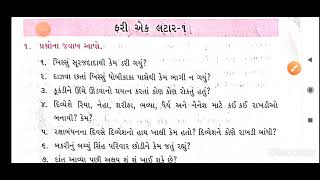 ફરી એક લટાર-૧
૧. પ્રશ્નોના જવાબ આપો.
૧. ખિસ્સું સૂરજદાદાથી કેમ ડરી ગયું?
૨. દાઝવા છતાં ખિસ્સું ધોબીકાકા પાસેથી કેમ ભાગી ન ગયું?
૩. ફૂકડીને ઊંચે ઊડવાનો પ્રયત્ન કરતાં કોણ કોણ રોકતું હતું?
૪. દિવ્યેશે રિયા, નેહા, શરીફા, બબ્બા, ધૈર્ય અને નેનેશ માટે કઈ કઈ રાખડીઓ
બનાવી? કેમ?
૫. રક્ષાબંધનના દિવસે દિવ્યેશનો હાથ ખાલી કેમ હતો? દિવ્યેશને કોણે રાખડી બાંધી?
૬. બકરીનું બચ્ચું સિંહ પરિવાર છોડીને કેમ જતું રહ્યું?
૭. દાંત આવ્યા પછી અક્ષય શું શું ખાઈ શકે છે?